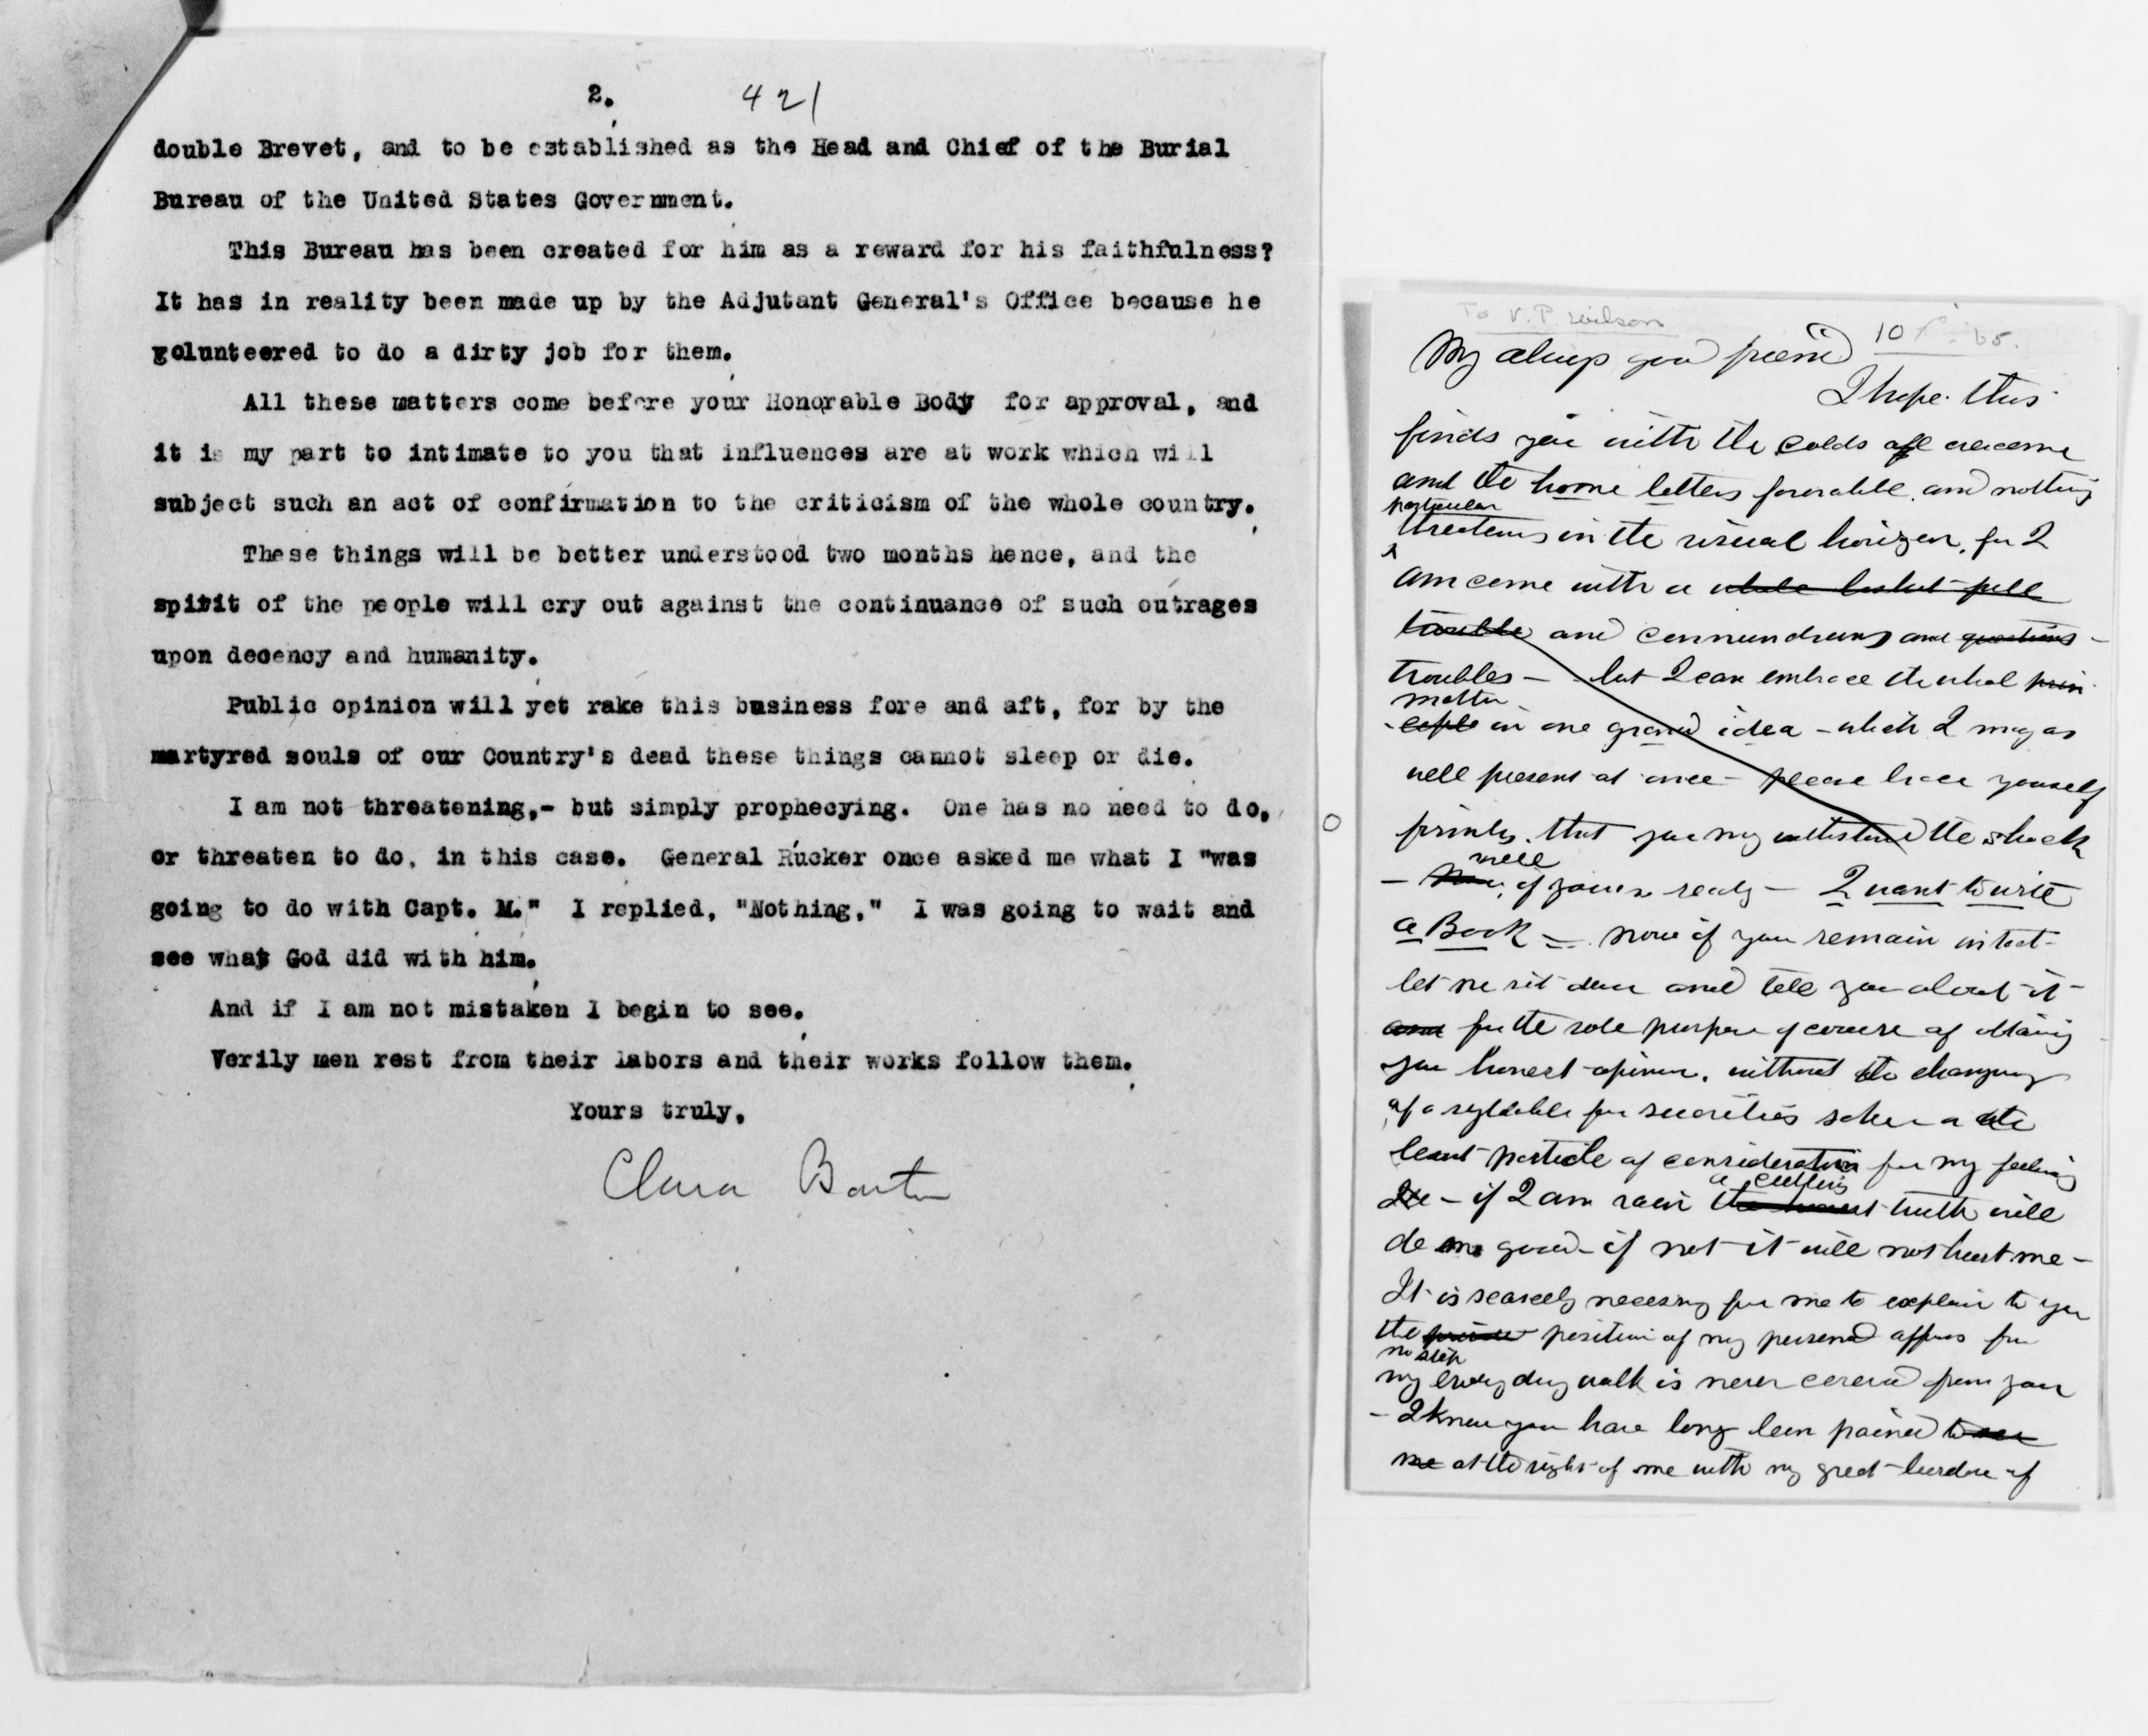 2. 421
double Brevet, and to be established as the Head and Chief of the Burial
Bureau of the United States Government.
This Bureau has been created for him as a reward for his faithfulness?
It has in reality been made up by the Adjutant General's Office because he
volunteered to do a dirty job for them.
All these matters come before your Honorable Body for approval, and
it is my part to intimate to you that influences are at work which will
subject such an act of confirmation to the criticism of the whole country.
These things will be better understood two months hence, and the
spirit of the people will cry out against the continuance of such outrages
upon decency and humanity.
Public opinion will yet rake this business fore and aft, for by the
martyred souls of our Country's dead these things cannot sleep or die.
I am not threatening,- but simply prophecying. One has no need to do,
or threaten to do, in this case. General Rucker once asked me what I "was
going to do with Capt. M." I replied, "Nothing," I was going to wait and
see what God did with him.
And if I am not mistaken I begin to see.
Verily men rest from their labors and their works follow them.
Yours truly,
Clara Barton
To V. P. Wilson
10 '65.
My always good friend
I hope this
finds you with the colds all overcome
and the home letters favorable, and nothing
particular
threatens in the visual horizon, for I
am come with a whole basket full
trouble and connundrums and questions -
troubles - but I can embrace the whole prin
matter
-ciple in one grand idea - which I may as
well present at once - please brace yourself
firmly, that you may withstand the shock
well
- Now, if you're ready - I want to write
a Book - now if you remain intact -
let me sit down and tell you about it -
and for the sole purpose of course of obtaining
your honest opinion, without the changing
of a syllable for securities sake - or the
least particle of consideration for my feeling
a cutting
- if I am vain the honest truth will
do me good - if not it will not hurt me -
It is scarcely necessary for me to explain to you
the position of my personal affairs for
no step
my every day walk is never covered from you
- I know you have long been pained to see
me at the sight of me with my great burden of